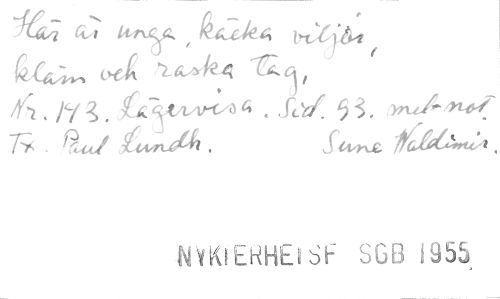 Här är unga, käcka viljor,
kläm och raska tag,
Nr. 143. Lägervisa. Sid. 93. mel-not.
Tx. Paul Lundh. Sune Waldimir.
NYKTERHETSF SGB 1955